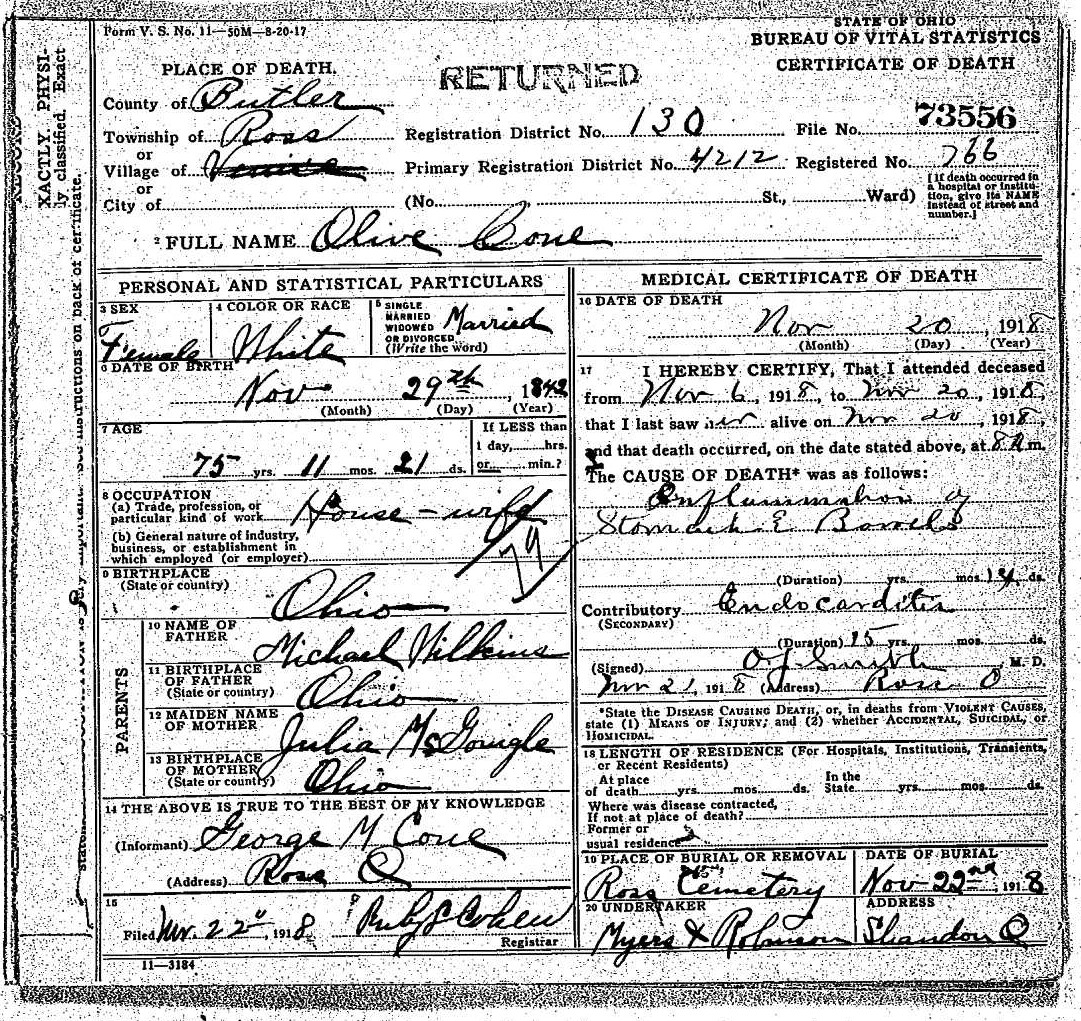 Form V. S. No. 11—50M—8-20-17
STATE OF OHIO
BUREAU OF VITAL STATISTICS
CERTIFICATE OF DEATH
RETURNED
PLACE OF DEATH.
County of Butler
Township of Ross
or
Village of Venice
or
City of
Registration District No. 130
File No. 73556
Primary Registration District No. 4212
Registered No. 766
(No. St., Ward)
[If death occurred in a hospital or institution, give its NAME instead of street and number.]
2 FULL NAME Olive Cone
XACTLY. PHYSI-
ly classified. Exact
instructions on back of certificate.
PERSONAL AND STATISTICAL PARTICULARS
3 SEX
Female
4 COLOR OR RACE
White
5 SINGLE
MARRIED
WIDOWED
OR DIVORCED
(Write the word)
Married
6 DATE OF BIRTH
Nov 29th, 1842
(Month) (Day) (Year)
7 AGE
75 yrs. 11 mos. 21 ds.
If LESS than
1 day, hrs.
or min.?
8 OCCUPATION
(a) Trade, profession, or
particular kind of work House-wife
(b) General nature of industry,
business, or establishment in
which employed (or employer)
79
9 BIRTHPLACE
(State or country)
Ohio
PARENTS
10 NAME OF
FATHER
Michael Wilkins
11 BIRTHPLACE
OF FATHER
(State or country)
Ohio
12 MAIDEN NAME
OF MOTHER
Julia McGonigle
13 BIRTHPLACE
OF MOTHER
(State or country)
Ohio
14 THE ABOVE IS TRUE TO THE BEST OF MY KNOWLEDGE
(Informant) George M Cone
(Address) Ross O
15
Filed Nov. 22", 1918 Ruby Cohen
Registrar
11—3184
MEDICAL CERTIFICATE OF DEATH
16 DATE OF DEATH
Nov 20, 1918
(Month) (Day) (Year)
17 I HEREBY CERTIFY, That I attended deceased
from Nov 6, 1918, to Nov 20, 1918,
that I last saw her alive on Nov 20, 1918,
and that death occurred, on the date stated above, at 8 a m.
The CAUSE OF DEATH* was as follows:
Inflammation of
Stomach & Bowels
(Duration) yrs. mos. 14 ds.
Contributory Endocarditis
(SECONDARY)
(Duration) 15 yrs. mos. ds.
(Signed) O J Smith, M. D.
Nov 21, 1918 (Address) Ross O
*State the DISEASE CAUSING DEATH, or, in deaths from VIOLENT CAUSES,
state (1) MEANS OF INJURY; and (2) whether ACCIDENTAL, SUICIDAL, or
HOMICIDAL.
18 LENGTH OF RESIDENCE (For Hospitals, Institutions, Transients,
or Recent Residents)
At place
of death yrs. mos. ds.
In the
State yrs. mos. ds.
Where was disease contracted,
If not at place of death?
Former or
usual residence
19 PLACE OF BURIAL OR REMOVAL
Ross Cemetery
DATE OF BURIAL
Nov 22nd, 1918
20 UNDERTAKER
Myers & Robinson
ADDRESS
Shandon O